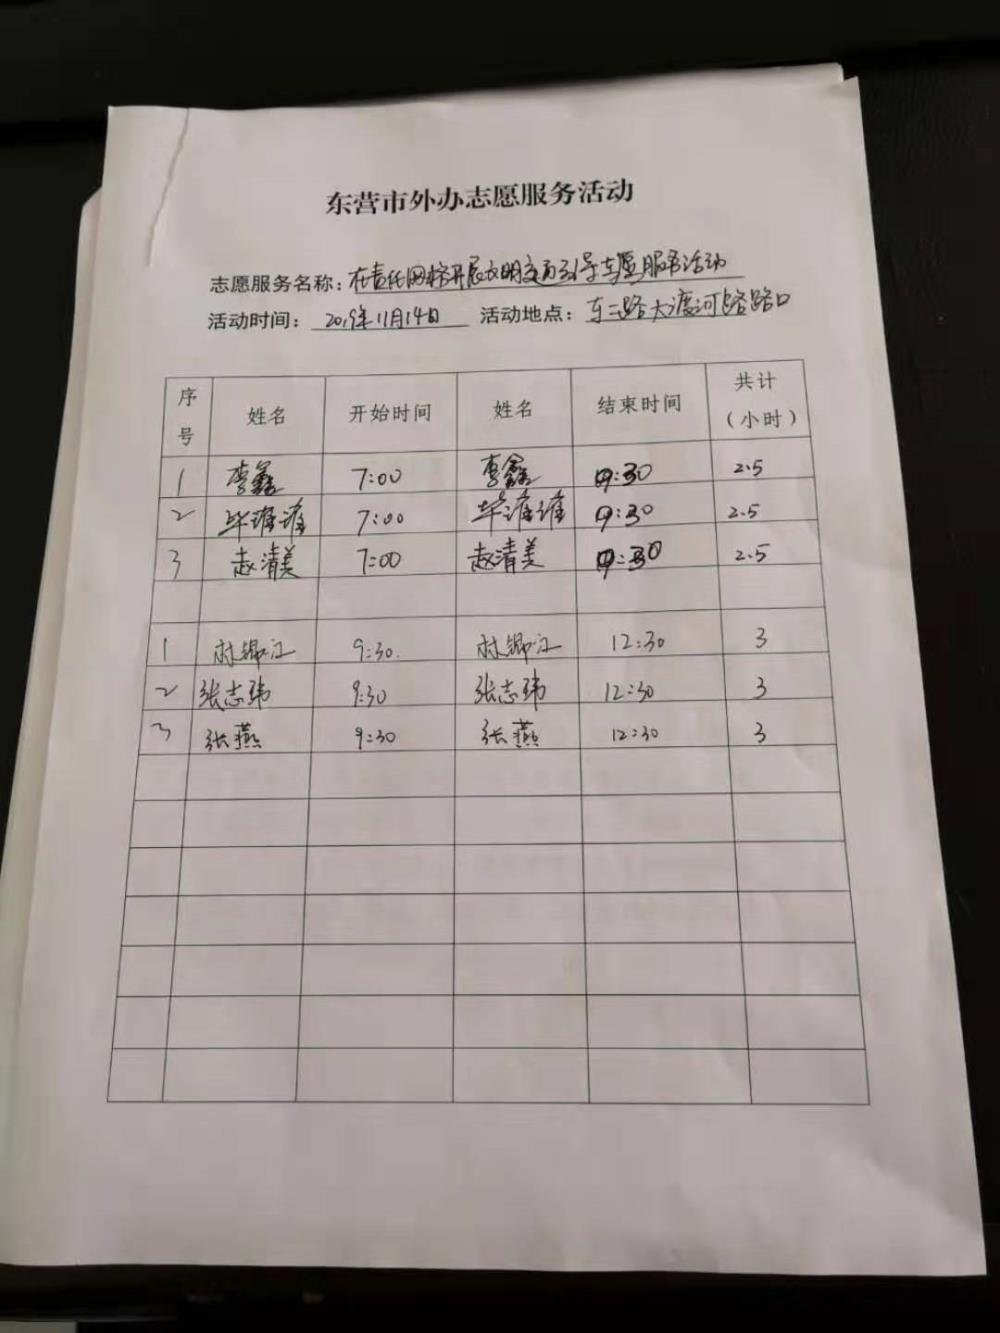 东营市外办志愿服务活动
志愿服务名称：在责任网格开展文明交通引导志愿服务活动
活动时间：2019年11月14日 活动地点：东二路大渡河路路口
序号 姓名 开始时间 姓名 结束时间 共计（小时）
1 李鑫 7:00 李鑫 9:30 2.5
2 毕谁谁 7:00 毕谁谁 9:30 2.5
3 赵清美 7:00 赵清美 9:30 2.5
1 9:30 12:30 3
2 张志玮 9:30 张志玮 12:30 3
3 张燕 9:30 张燕 12:30 3